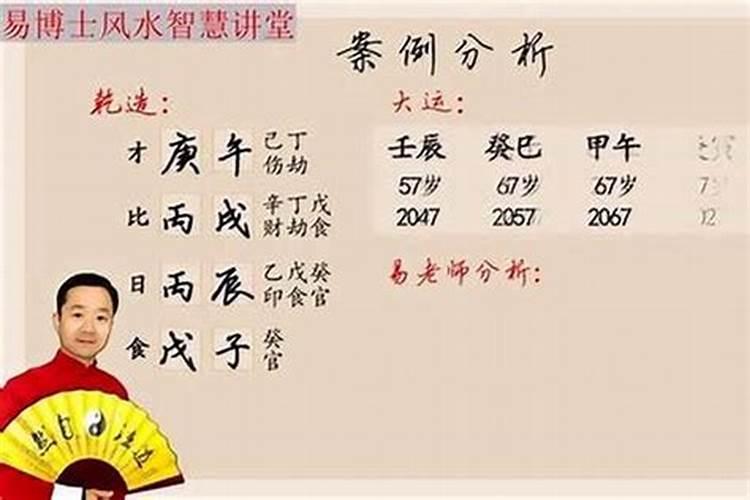 易博士风水智慧讲堂
案例分析
乾造：
大运：
才 庚 午 己丁
伤劫
比 丙 戌 辛丁戊
财劫食
日 丙 辰 乙戊癸
印食官
食 戊 子 癸
官
壬辰 癸巳 甲午
57岁 67岁 67岁
2047 2057 2067
易老师分析：